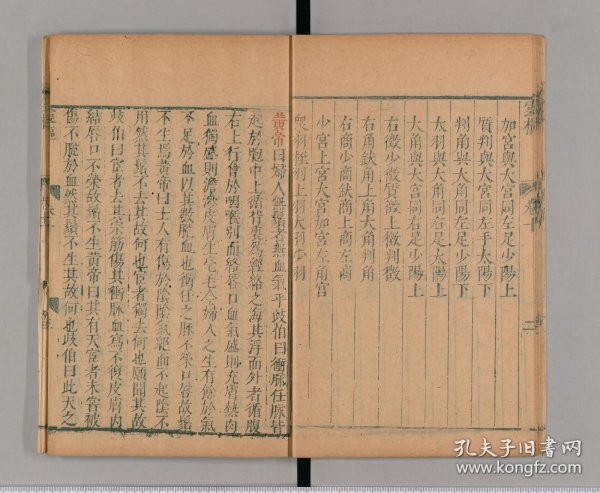 加宮與大宮同左足少陽上
質判與大宮同左手太陽下
判角與大角同左足少陽下
太羽與大角同右足太陽上
大角與大宮同右足少陽上
右徵少徵質徵上徵判徵
右角釱角上角大角判角
右商少商釱商上商左商
少宮上宮大宮加宮左角宮
衆羽桎羽上羽大羽少羽
黃帝曰婦人無鬚者無血氣乎歧伯曰衝脈任脈皆
起於胞中上循背裏為經絡之海其浮而外者循腹
右上行會於咽喉別而絡唇口血氣盛則充膚熱肉
血獨盛則澹滲皮膚生毫毛今婦人之生有餘於氣
不足於血以其數脫血也衝任之脈不榮口唇故鬚
不生焉黃帝曰士人有傷於陰陰氣絕而不起陰不
用然其鬚不去其故何也宦者獨去何也願聞其故
歧伯曰宦者去其宗筋傷其衝脈血瀉不復皮膚內
結唇口不榮故鬚不生黃帝曰其有天宦者未嘗被
傷不脫於血然其鬚不生其故何也歧伯曰此天之
孔夫子旧书网
www.kongfz.com